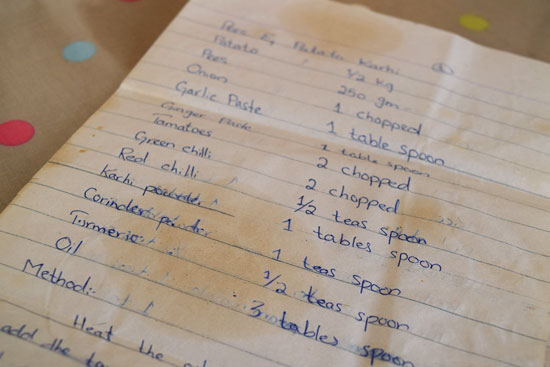 Pees & Patato Karhi
Patato 1/2 kg
Pees 250 gm
Onion 1 chopped
Garlic Paste 1 table spoon
Ginger Paste 1 table spoon
Tomatoes 2 chopped
Green chilli 2 chopped
Red chilli 1/2 teas spoon
Karhi powder 1 tables spoon
Corinder powder 1 teas spoon
Turmeric 1/2 teas spoon
Oil 3 tables spoon
Method:
Heat the
add the